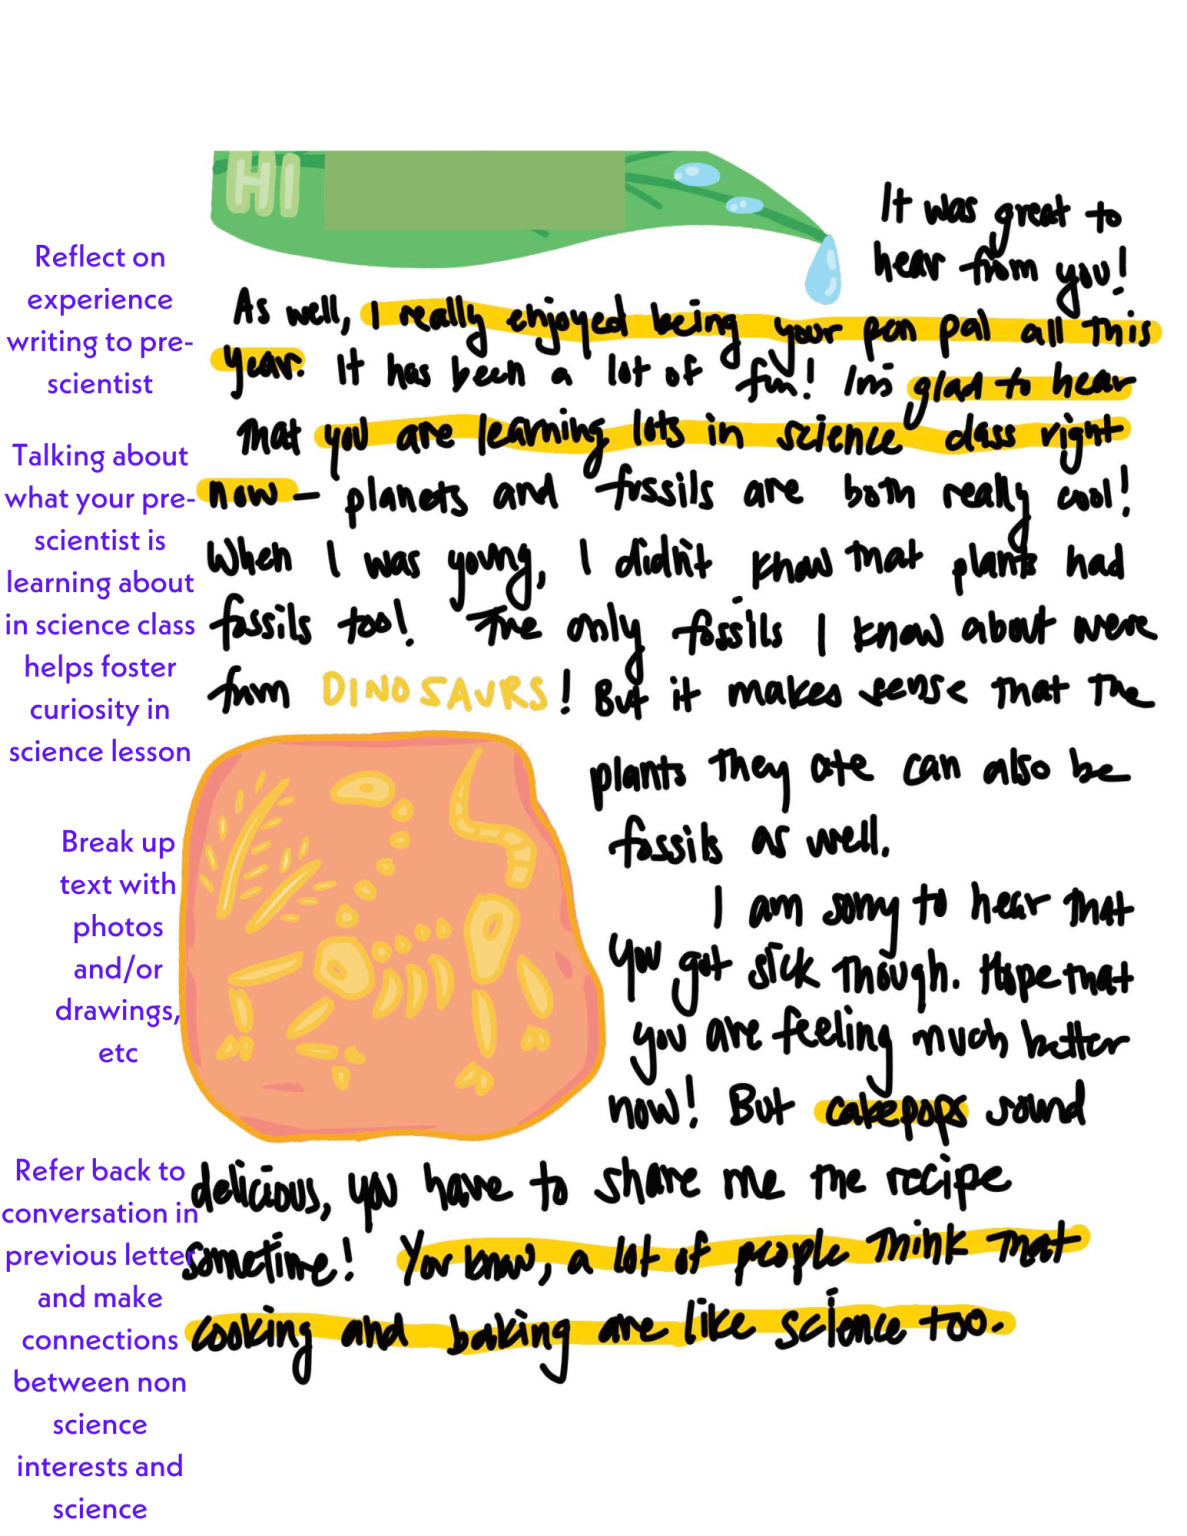 HI
It was great to
hear from you!
As well, I really enjoyed being your pen pal all this
year. It has been a lot of fun! Im glad to hear
that you are learning lots in science class right
now — planets and fossils are both really cool!
When I was young, I didn't know that plants had
fossils too! The only fossils I know about were
from DINOSAURS! But it makes sense that the
plants they ate can also be
fossils as well.
I am sorry to hear that
you got sick though. Hope that
you are feeling much better
now! But cakepops sound
delicious, you have to share me the recipe
sometime! You know, a lot of people think that
cooking and baking are like science too.
Reflect on
experience
writing to pre-
scientist
Talking about
what your pre-
scientist is
learning about
in science class
helps foster
curiosity in
science lesson
Break up
text with
photos
and/or
drawings,
etc
Refer back to
conversation in
previous letter
and make
connections
between non
science
interests and
science